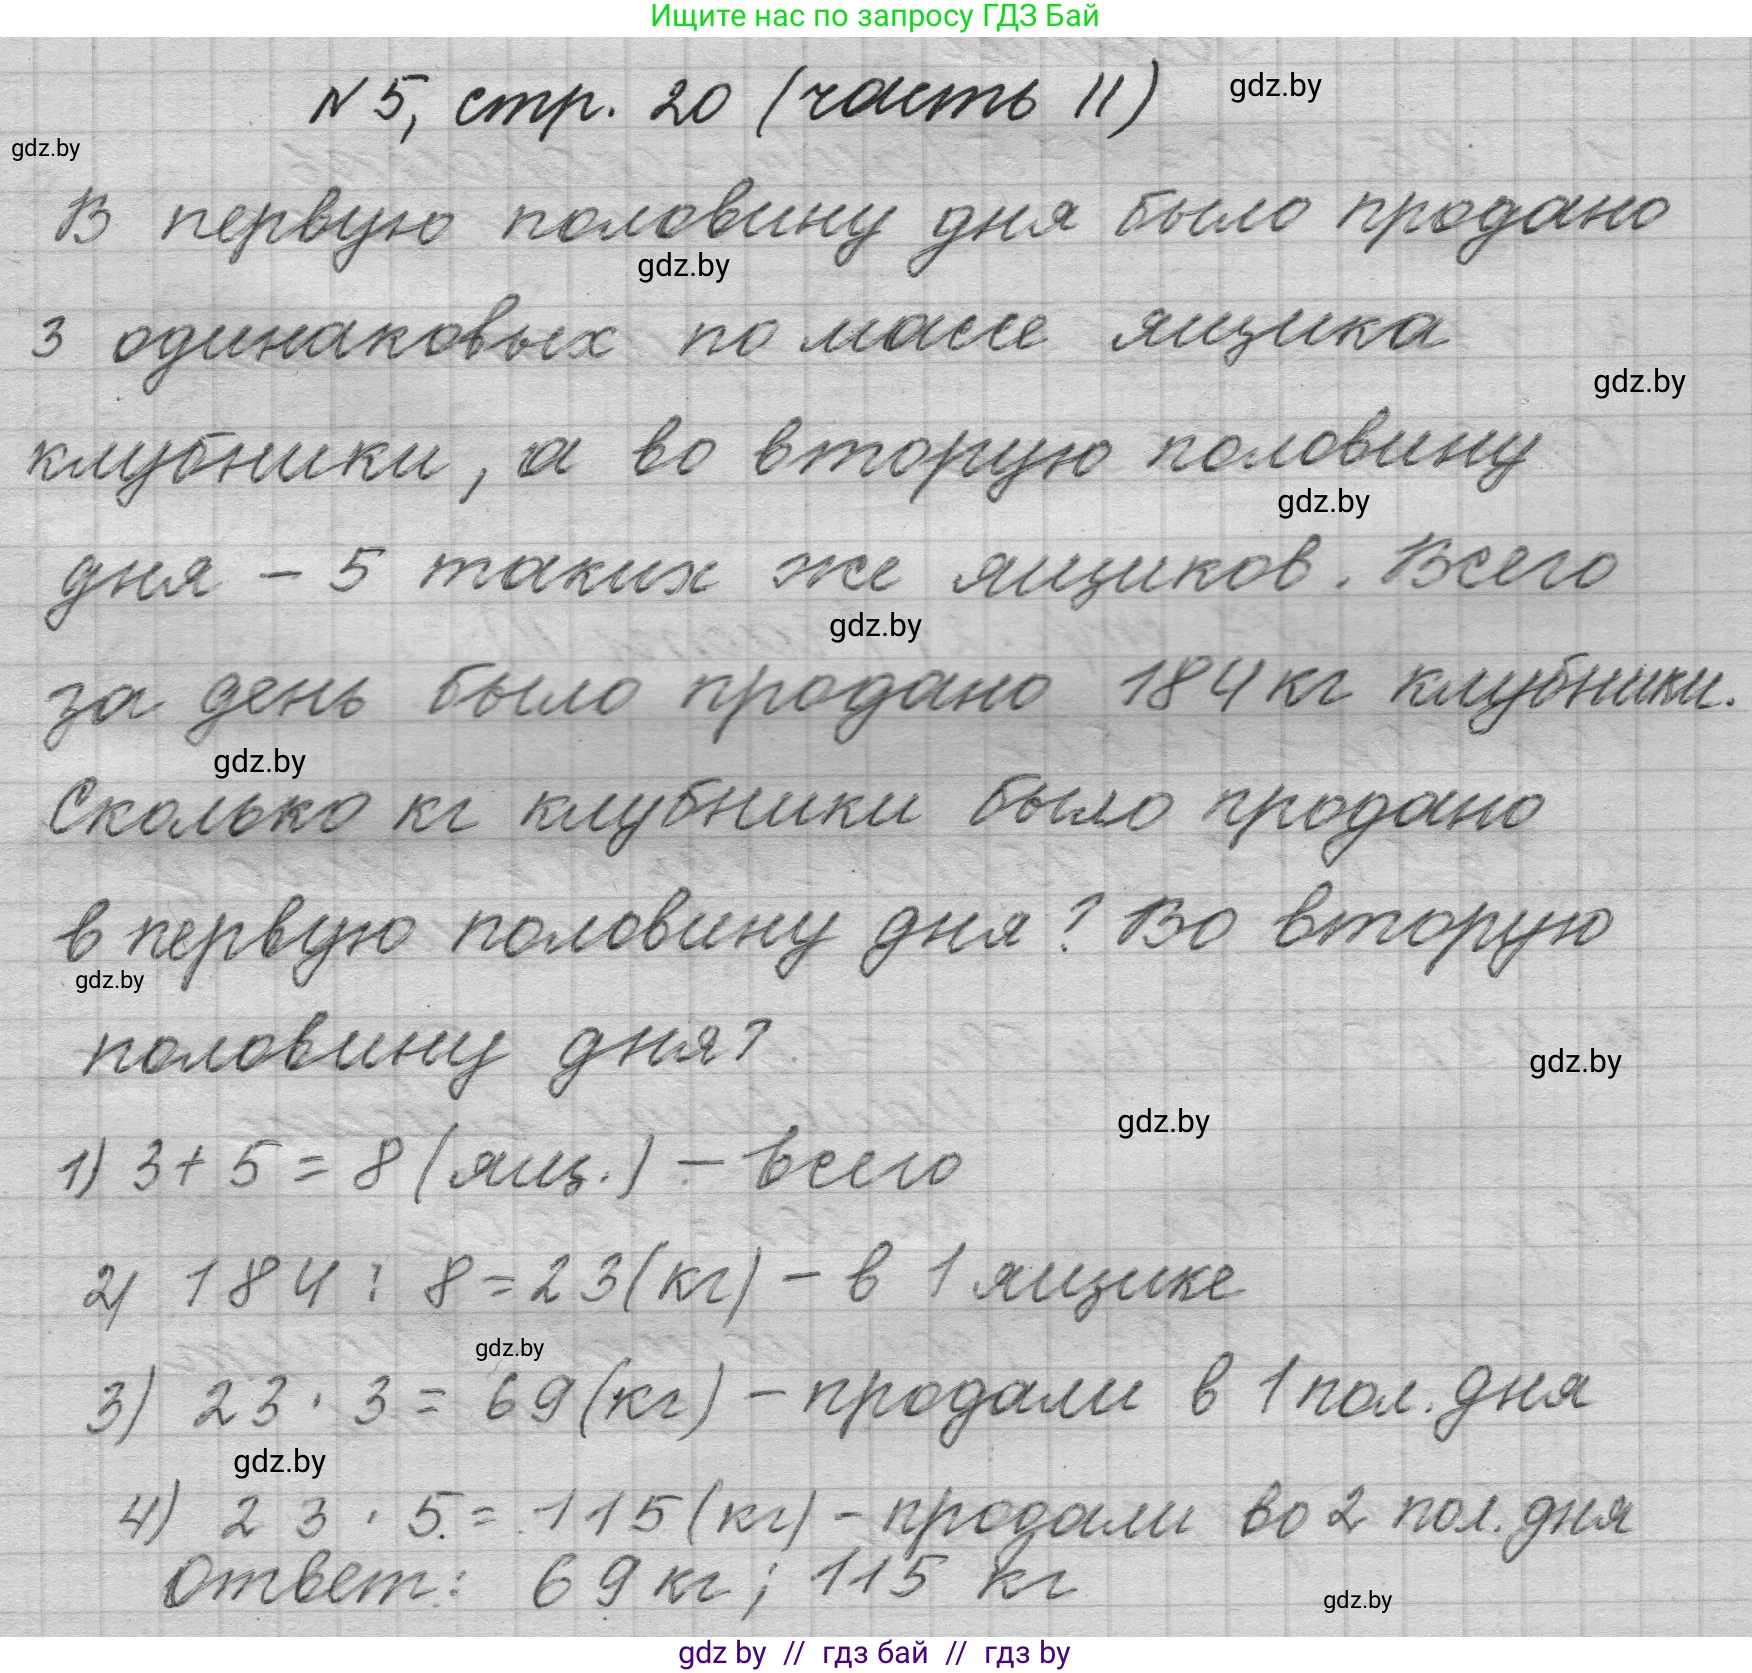 Ищите нас по запросу ГДЗ Бай
N 5, стр. 20 (часть II)
gdz.by
gdz.by
В первую половину дня было продано
gdz.by
3 одинаковых по массе ящика
gdz.by
клубники, а во вторую половину
gdz.by
дня - 5 таких же ящиков. Всего
gdz.by
за день было продано 184 кг клубники.
gdz.by
Сколько кг клубники было продано
в первую половину дня? Во вторую
gdz.by
половину дня?
gdz.by
gdz.by
1) 3 + 5 = 8 (ящ.) - всего
2) 184 : 8 = 23 (кг) - в 1 ящике
gdz.by
3) 23 · 3 = 69 (кг) - продали в 1 пол. дня
gdz.by
4) 23 · 5 = 115 (кг) - продали во 2 пол. дня
Ответ: 69 кг; 115 кг
gdz.by
gdz by // гдз бай // gdz by